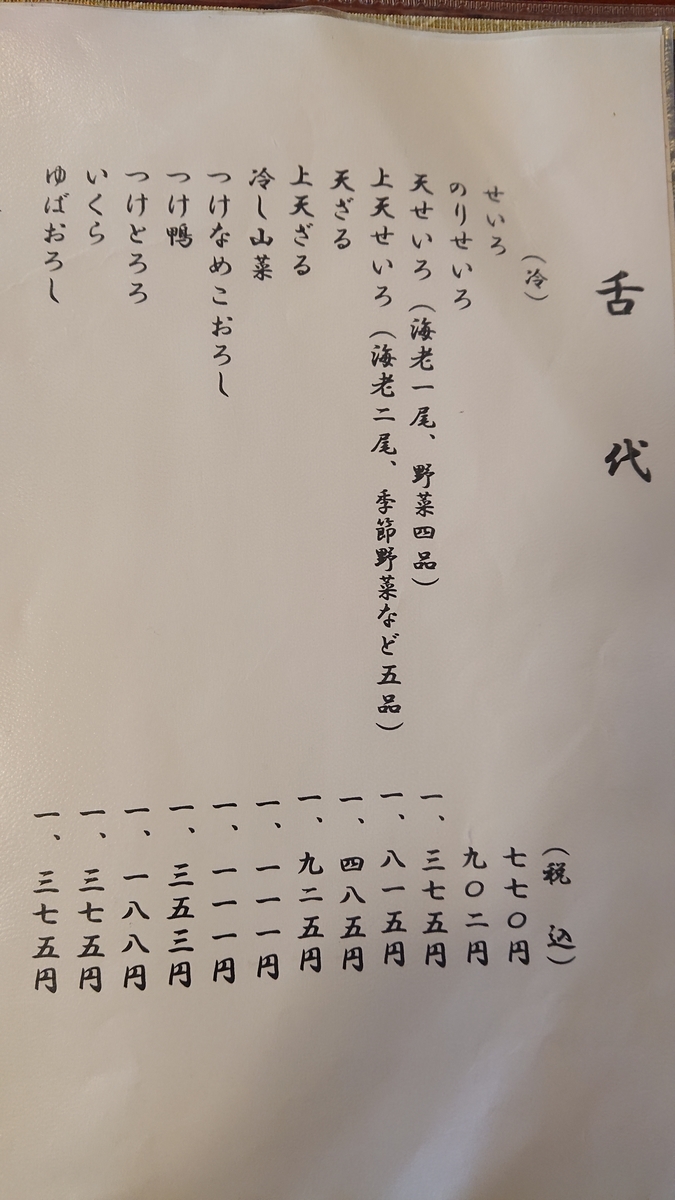 舌代
（冷）
（税込）
せいろ 七七〇円
のりせいろ 九〇二円
天せいろ（海老一尾、野菜四品） 一、三七五円
上天せいろ（海老二尾、季節野菜など五品） 一、八一五円
天ざる 一、四八五円
上天ざる 一、九二五円
冷し山菜 一、一一一円
つけなめこおろし 一、一一一円
つけ鴨 一、三五三円
つけとろろ 一、一八八円
いくら 一、三七五円
ゆばおろし 一、三七五円